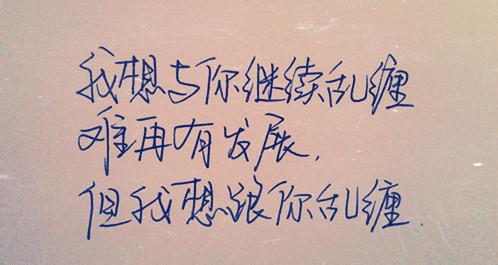 我想与你继续乱缠
难再有发展.
但我想跟你乱缠.